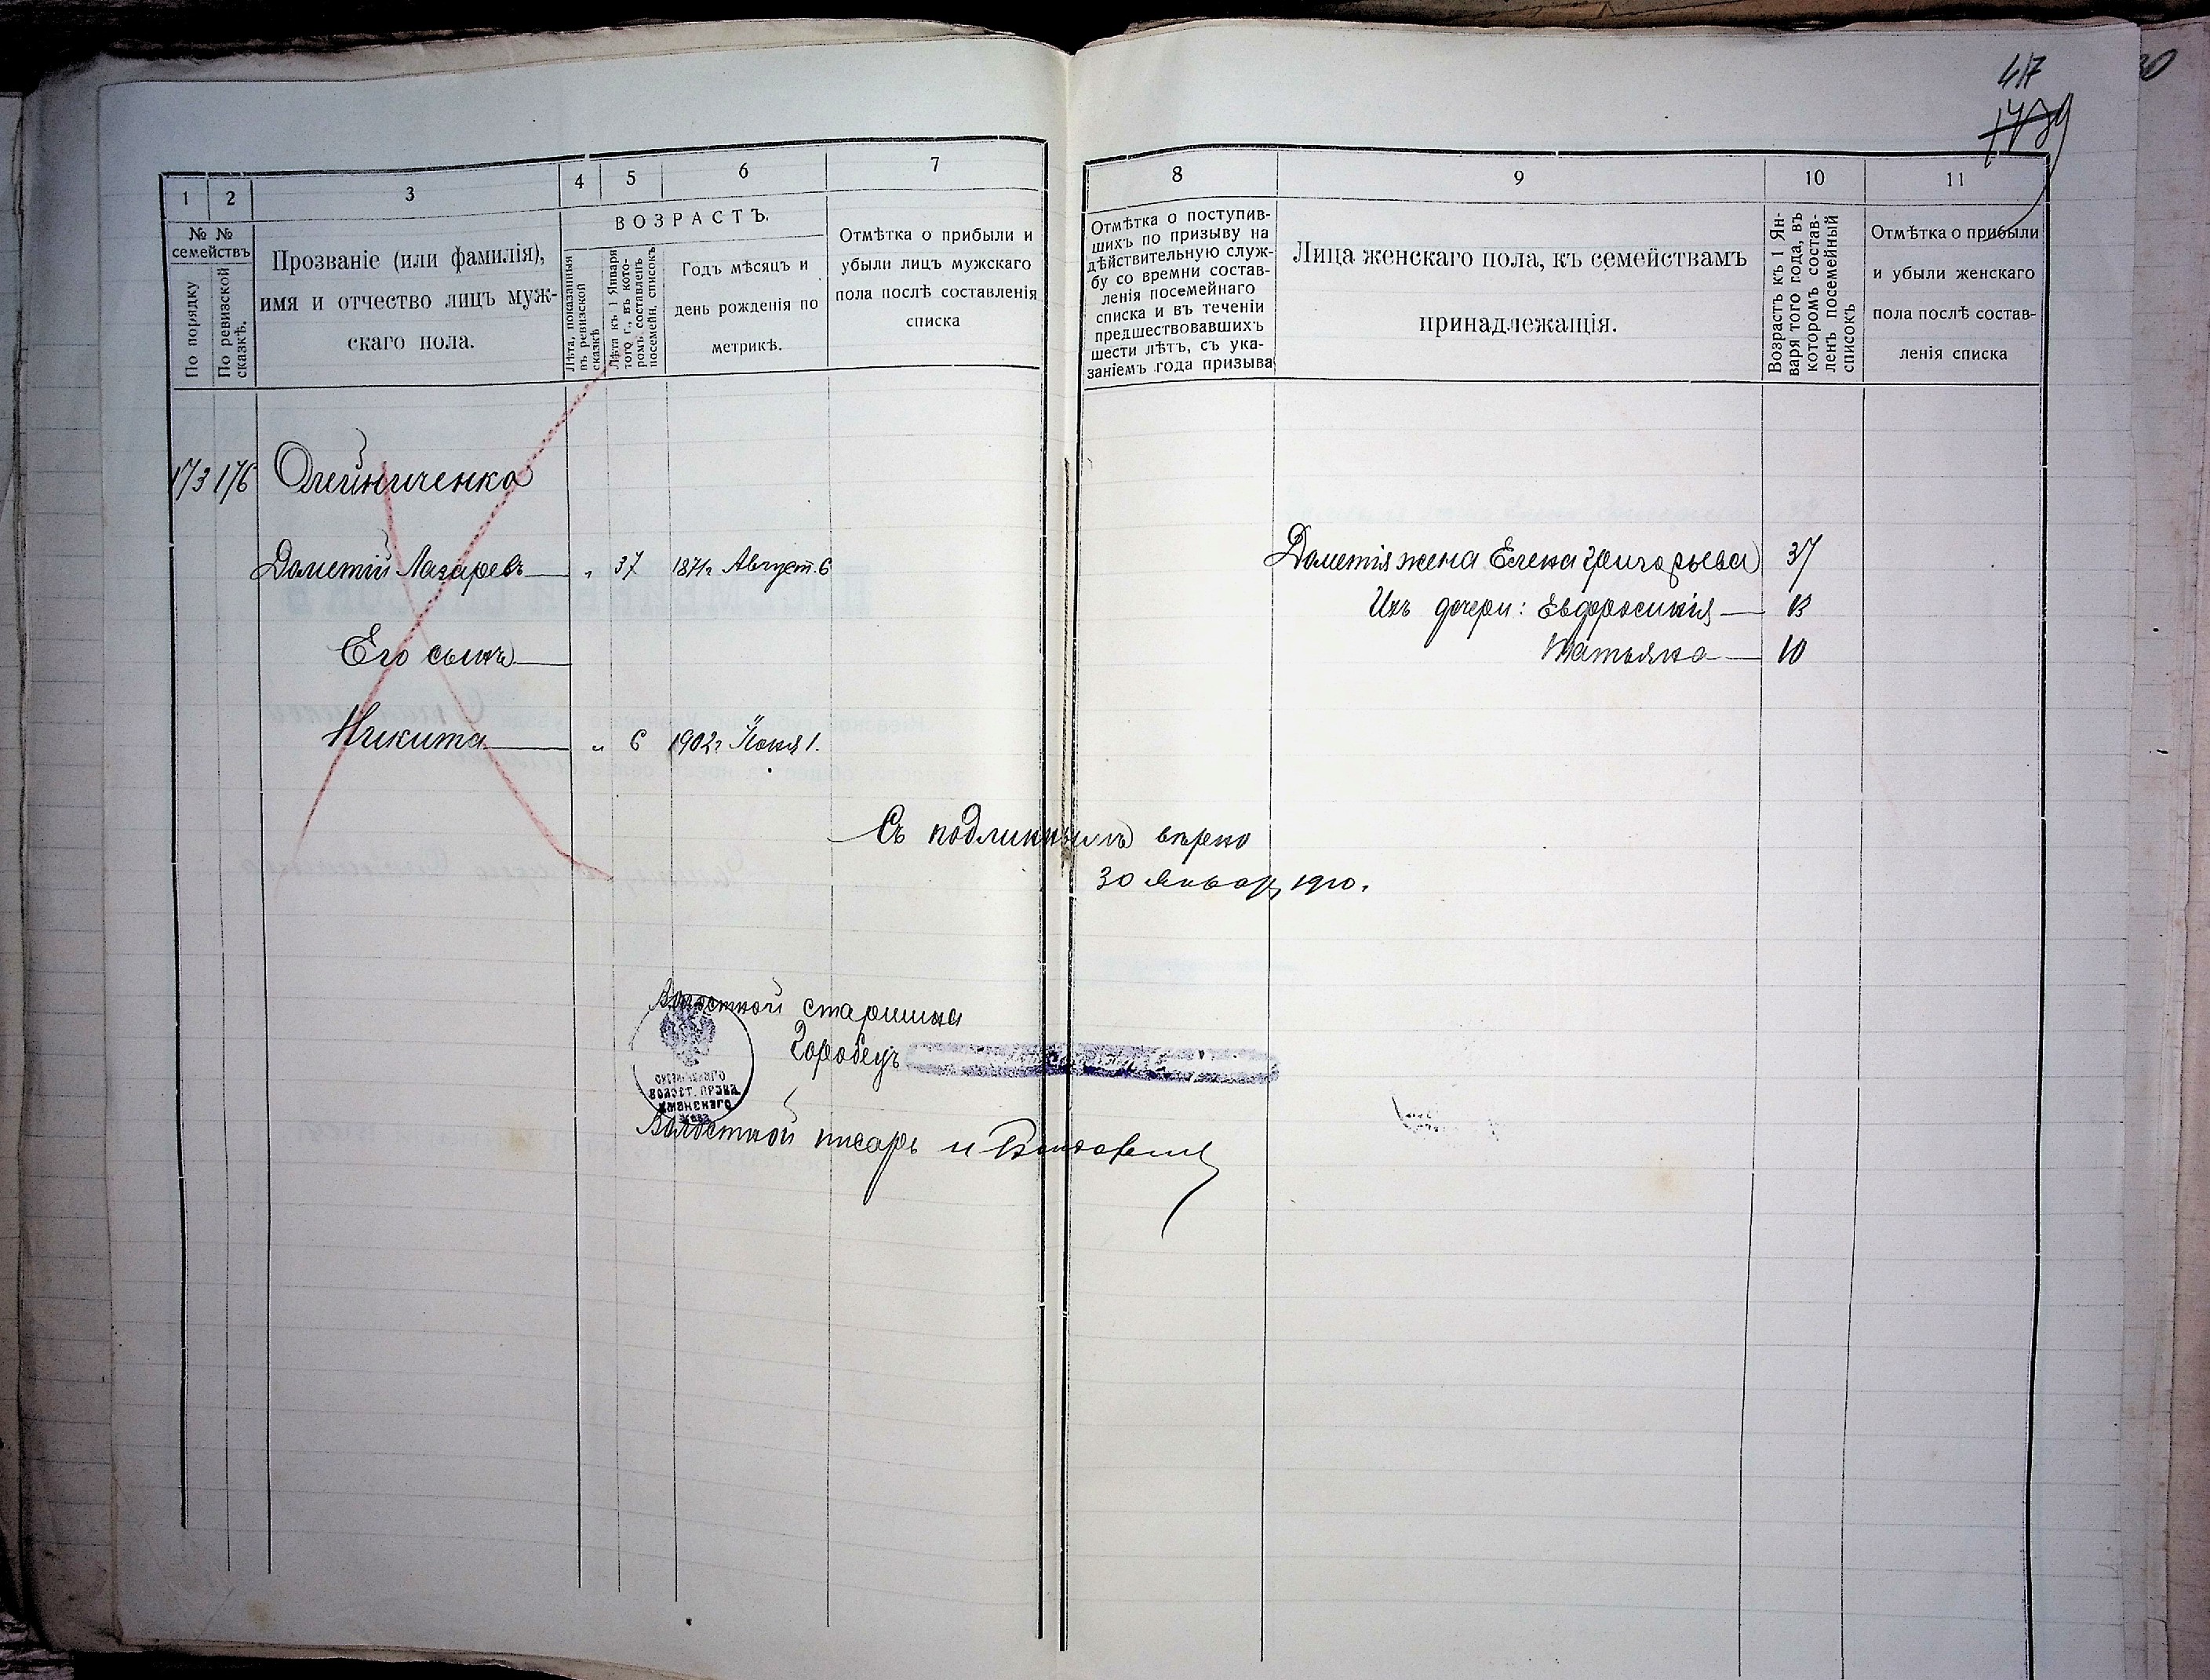 417
1 2 3 4 5 6 7
№ № семействъ
По порядку
По ревизской сказкѣ.
Прозваніе (или фамилія),
имя и отчество лицъ муж-
скаго пола.
ВОЗРАСТЪ.
Лѣта, показанныя
въ ревизской
сказкѣ
Лѣта къ 1 Января
того г., въ кото-
ромъ составленъ
посемейн. списокъ
Годъ мѣсяцъ и
день рожденія по
метрикѣ.
Отмѣтка о прибыли и
убыли лицъ мужскаго
пола послѣ составленія
списка
8 9 10 11
Отмѣтка о поступив-
шихъ по призыву на
дѣйствительную служ-
бу со времни состав-
ленія посемейнаго
списка и въ теченіи
предшествовавшихъ
шести лѣтъ, съ ука-
заніемъ года призыва
Лица женскаго пола, къ семействамъ
принадлежащія.
Возрастъ къ 1 Ян-
варя того года, въ
которомъ состав-
ленъ посемейный
списокъ
Отмѣтка о прибыли
и убыли женскаго
пола послѣ состав-
ленія списка
173 176 Олейниченко
Дометій Лазаревъ „ 37 1871г Август. 6
Его сынъ
Никита „ 6 1902г Іюня 1.
Дометія жена Елена Григорьева 37
Ихъ дочери: Евфросинія 13
Татьяна 10
Съ подлиннымъ вѣрно
30 Января 1910.
Волостной старшина
Горобецъ
ВОЛОСТ. ПРАВЛ.
УМАНСКАГО
УѢЗД.
Волостной писарь